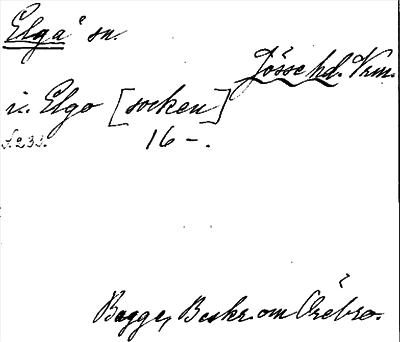 Elgå sn.
Jösse hd. Vrm.
i. Elgo [socken]
s. 233. 16-.
Bagge, Beskr. om Örebro.